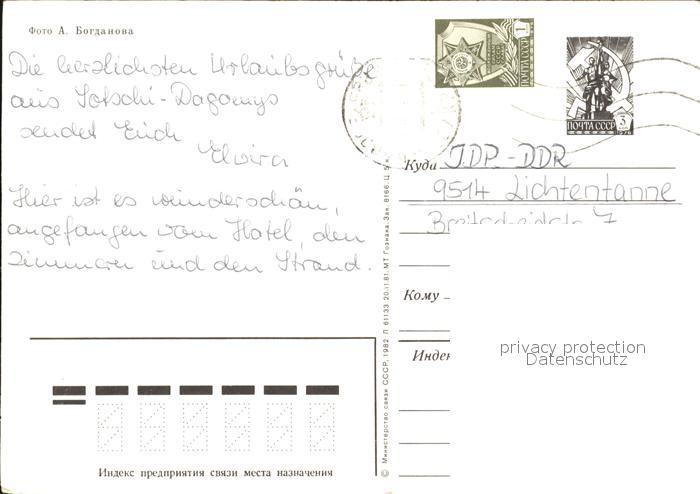 Фото А. Богданова
Die herzlichsten Urlaubsgrüße
aus Sotschi-Dagomys
sendet Euch
Elvira
Hier ist es wunderschön,
angefangen vom Hotel, den
Zimmern und den Strand.
1
ПОЧТА СССР
3
ПОЧТА СССР
Куда ГДР-DDR
9514 Lichtentanne
Breitscheidstr. 7
Кому
Индек
privacy protection
Datenschutz
Индекс предприятия связи места назначения
© Министерство связи СССР. 1982. Л 61133 20.11.81. МТ Гознака. Зак. 8166. Ц. 5 к.